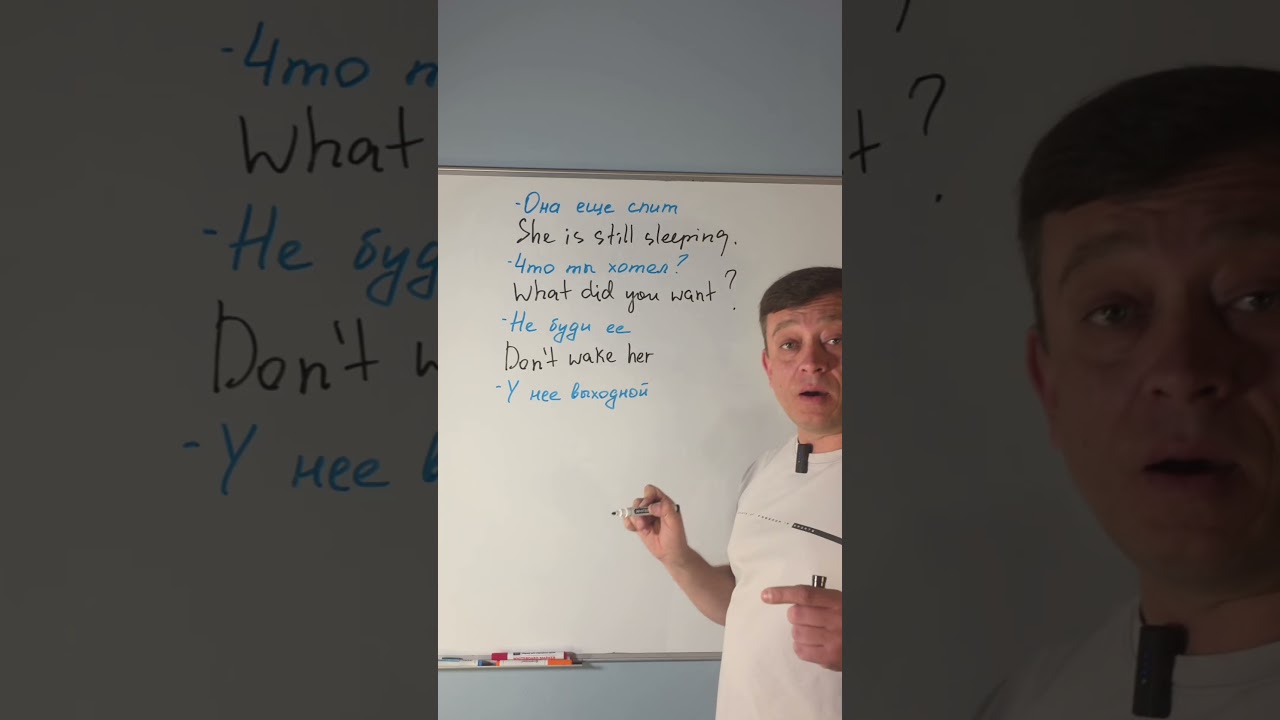 -Она еще спит
She is still sleeping.
-Что ты хотел?
What did you want?
-Не буди ее
Don't wake her
-У нее выходной